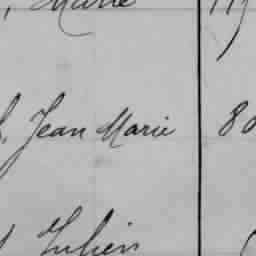 Marie
Jean Marie 80
Julien